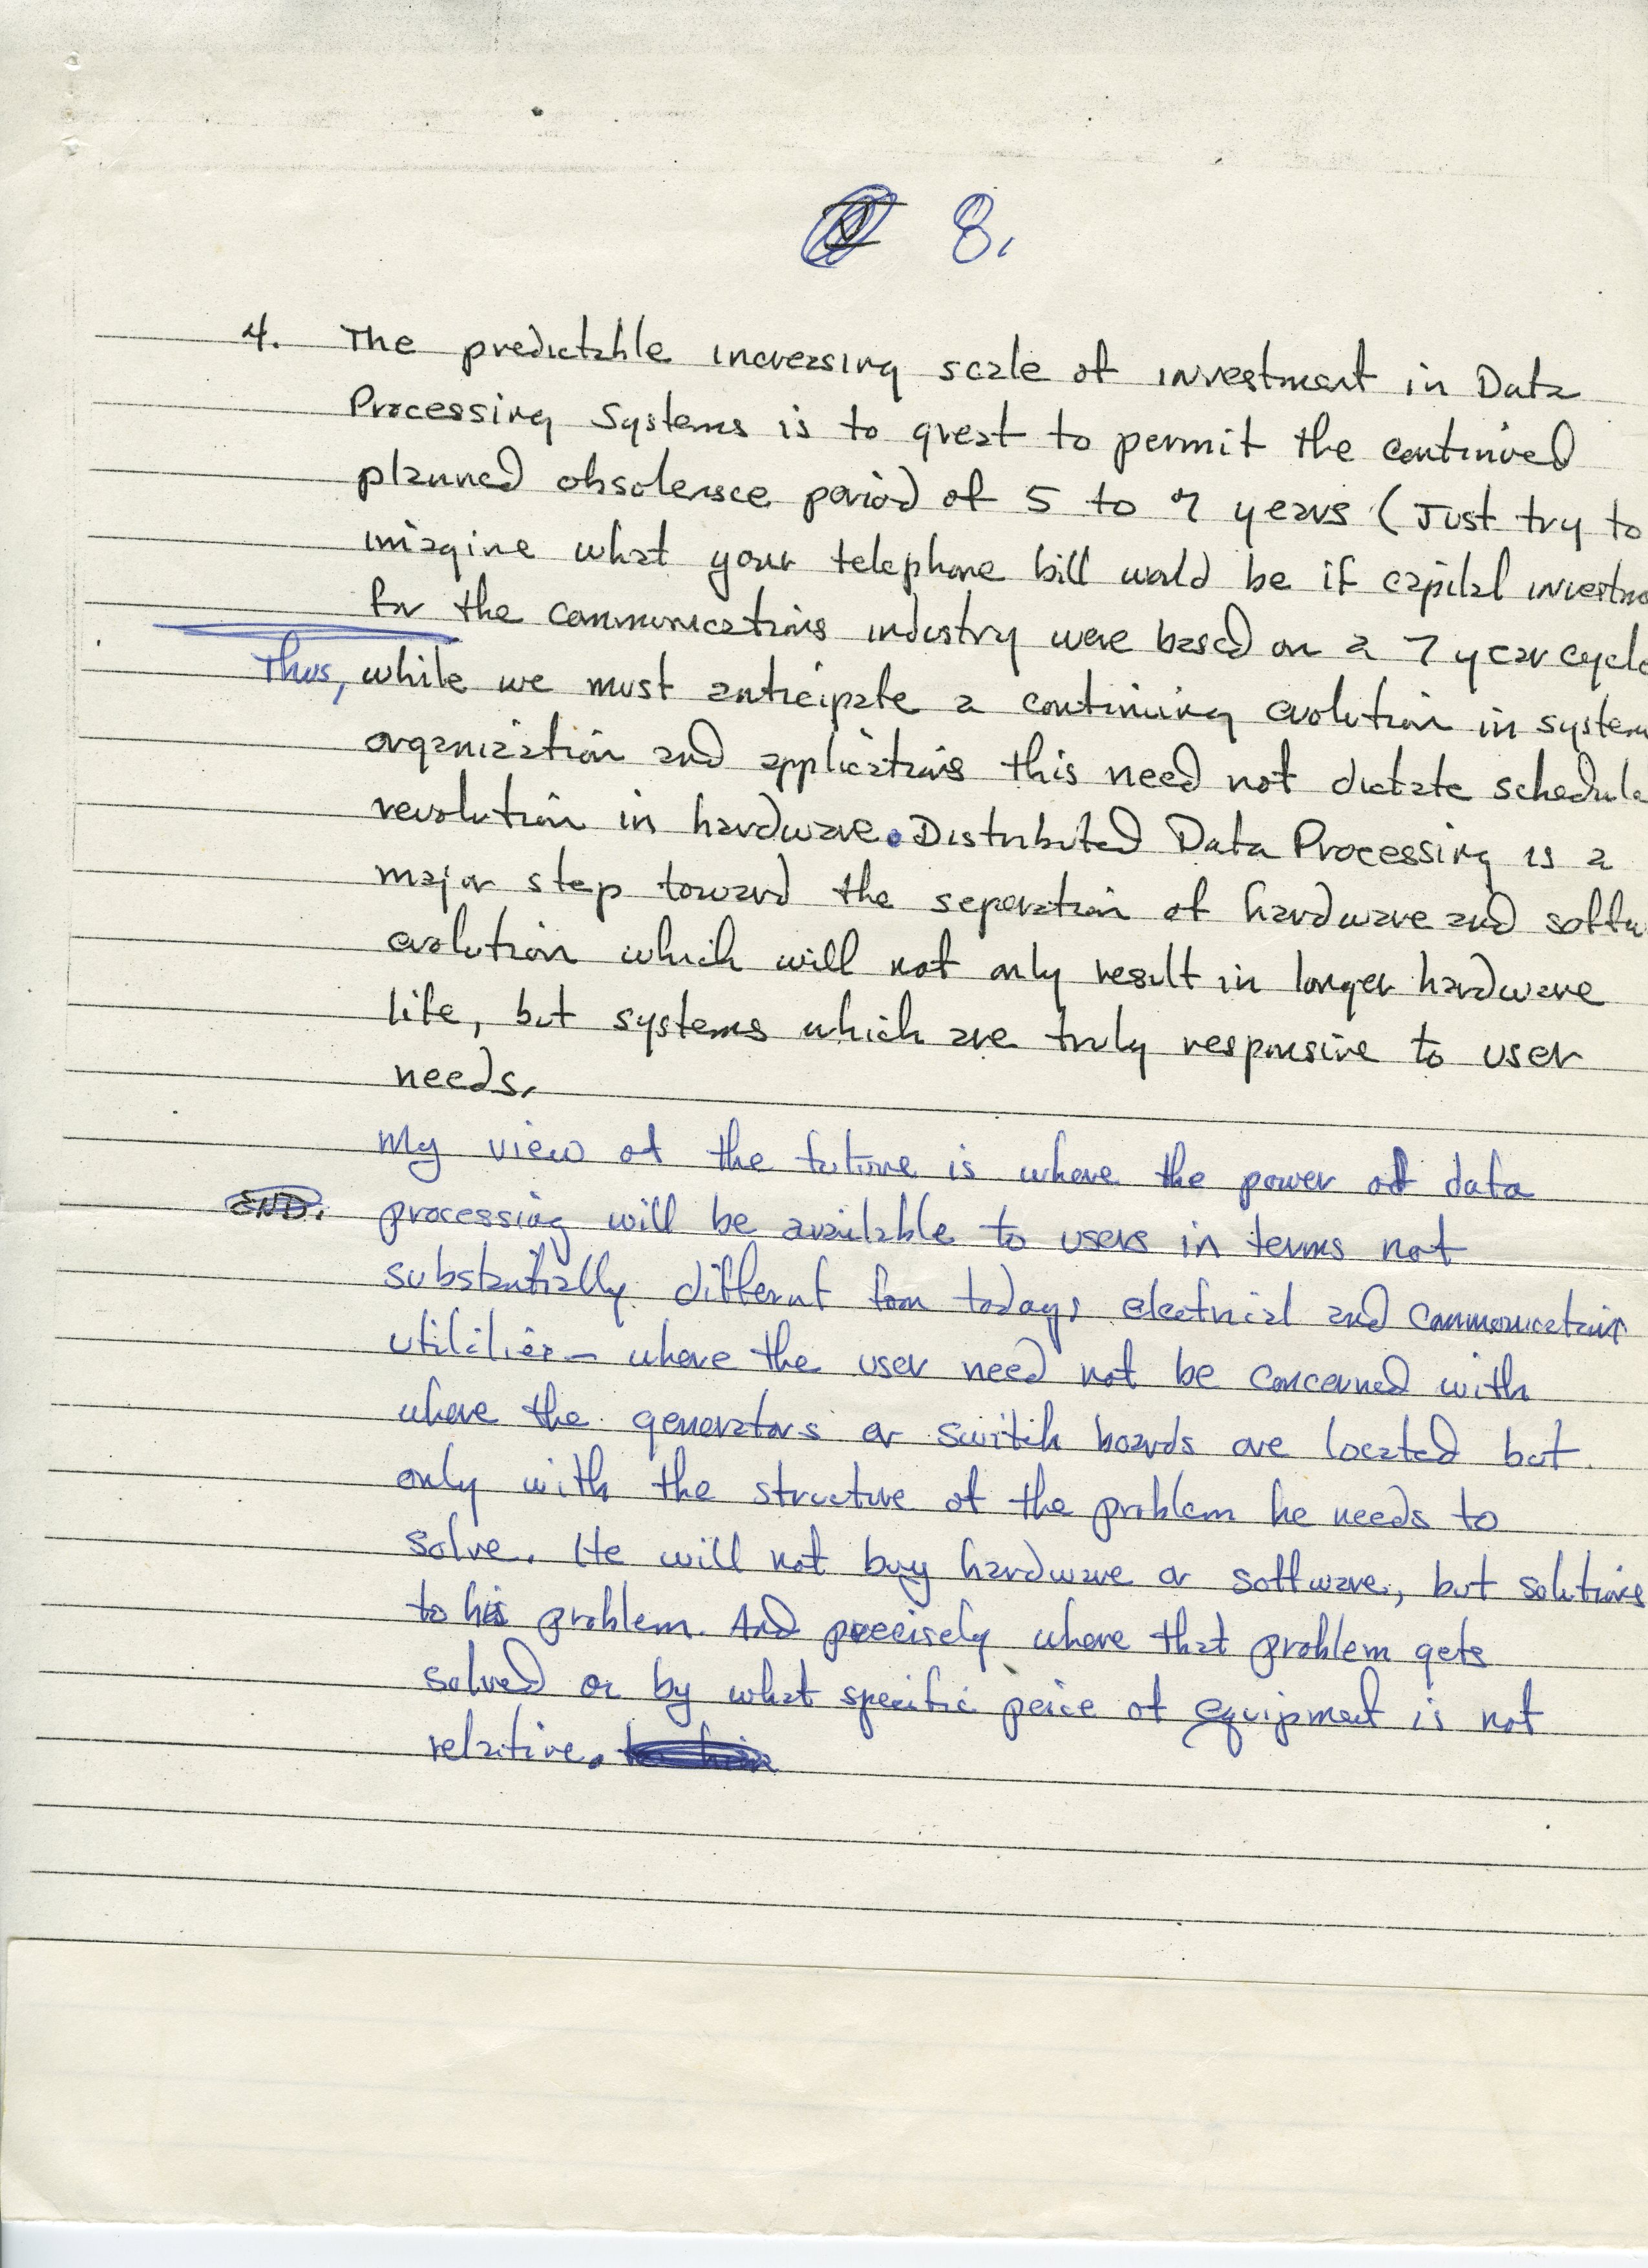 8.
4. The predictable increasing scale of investment in Data
Processing Systems is to great to permit the continued
planned obsolensce period of 5 to 7 years (Just try to
imagine what your telephone bill would be if capital investm
for the communications industry were based on a 7 year cycle
Thus, while we must anticipate a continuing evolution in system
organization and applications this need not dictate schedule
revolution in hardware. Distributed Data Processing is a
major step toward the seperation of hardware and softw
evolution which will not only result in longer hardware
life, but systems which are truly responsive to user
needs.
My view of the future is where the power of data
END. processing will be available to users in terms not
substantially different from todays electrical and communications
utilities - where the user need not be concerned with
where the generators or switch boards are located but
only with the structure of the problem he needs to
solve. He will not buy hardware or software, but solutions
to his problem. And precisely where that problem gets
solved or by what specific peice of equipment is not
relative.